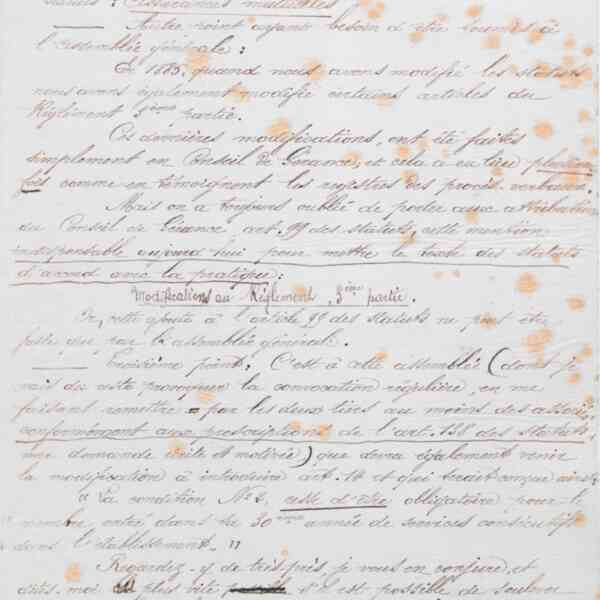 statuts : assurances mutuelles
— Autre point ayant besoin d'être soumis à
l'assemblée générale :
En 1885, quand nous avons modifié les statuts
nous avons également modifié certains articles du
Règlement 3ème partie.
Ces dernières modifications, ont été faites
simplement en Conseil de Gérance, et cela a eu lieu plusieurs
fois comme en témoignent les registres des procès-verbaux.
Mais on a toujours oublié de porter aux attributions
du Conseil de Gérance art. 99 des statuts, cette mention
indispensable aujourd'hui pour mettre le texte des statuts
d'accord avec la pratique :
Modifications au Règlement, 3ème partie.
Or, cette ajoute à l'article 99 des statuts ne peut être
faite que par l'assemblée générale.
— Troisième point : C'est à cette assemblée (dont je
vais de suite provoquer la convocation régulière, en me
faisant remettre par les deux tiers au moins des associés
conformément aux prescriptions de l'art. 138 des statuts,
une demande écrite et motivée) que devra également venir
la modification à introduire art. 14 et qui serait conçue ainsi
" La condition No 2, cesse d'être obligatoire pour le
membre entré dans sa 30ème année de services consécutifs
dans l'établissement. "
Regardez-y de très près, je vous en conjure, et
dites-moi plus vite s'il est possible de soulever